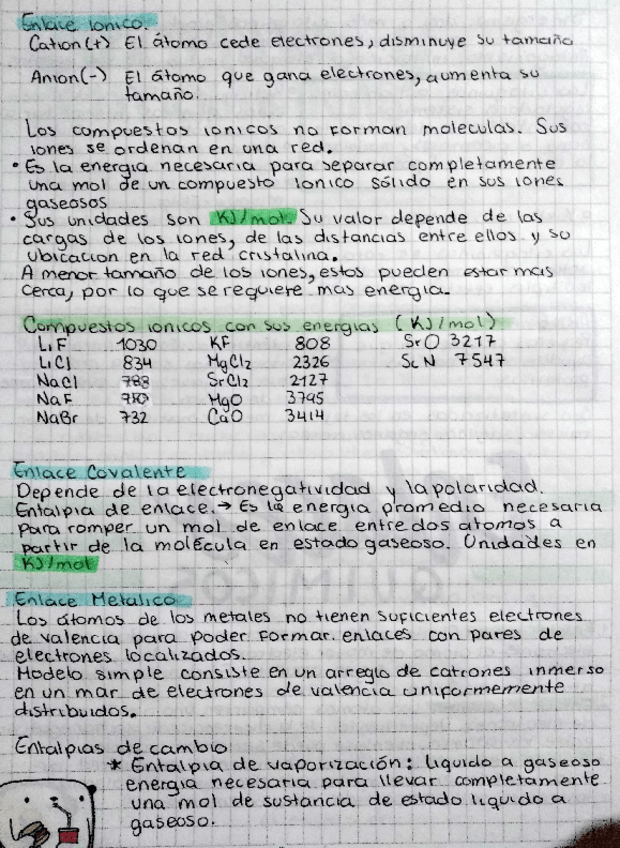 Enlace Ionico.
Cation (+) El átomo cede electrones, disminuye su tamaño
Anion (-) El átomo que gana electrones, aumenta su
tamaño.
Los compuestos ionicos no forman moleculas. Sus
iones se ordenan en una red.
• Es la energia necesaria para separar completamente
una mol de un compuesto ionico sólido en sus iones
gaseosos
• Sus unidades son KJ/mol. Su valor depende de las
cargas de los iones, de las distancias entre ellos y su
ubicacion en la red cristalina.
A menor tamaño de los iones, estos pueden estar mas
cerca, por lo que se requiere mas energia.
Compuestos ionicos con sus energias (KJ/mol)
LiF 1030 KF 808 SrO 3217
LiCl 834 MgCl2 2326 ScN 7547
NaCl 788 SrCl2 2127
NaF MgO 3795
NaBr 732 CaO 3414
Enlace Covalente
Depende de la electronegatividad y la polaridad.
Entalpia de enlace. → Es la energia promedio necesaria
para romper un mol de enlace entre dos atomos a
partir de la molécula en estado gaseoso. Unidades en
KJ/mol
Enlace Metalico
Los átomos de los metales no tienen suficientes electrones
de valencia para poder formar enlaces con pares de
electrones localizados.
Modelo simple consiste en un arreglo de cationes inmerso
en un mar de electrones de valencia uniformemente
distribuidos.
Entalpias de cambio
* Entalpia de vaporización: liquido a gaseoso
energia necesaria para llevar completamente
una mol de sustancia de estado liquido a
gaseoso.